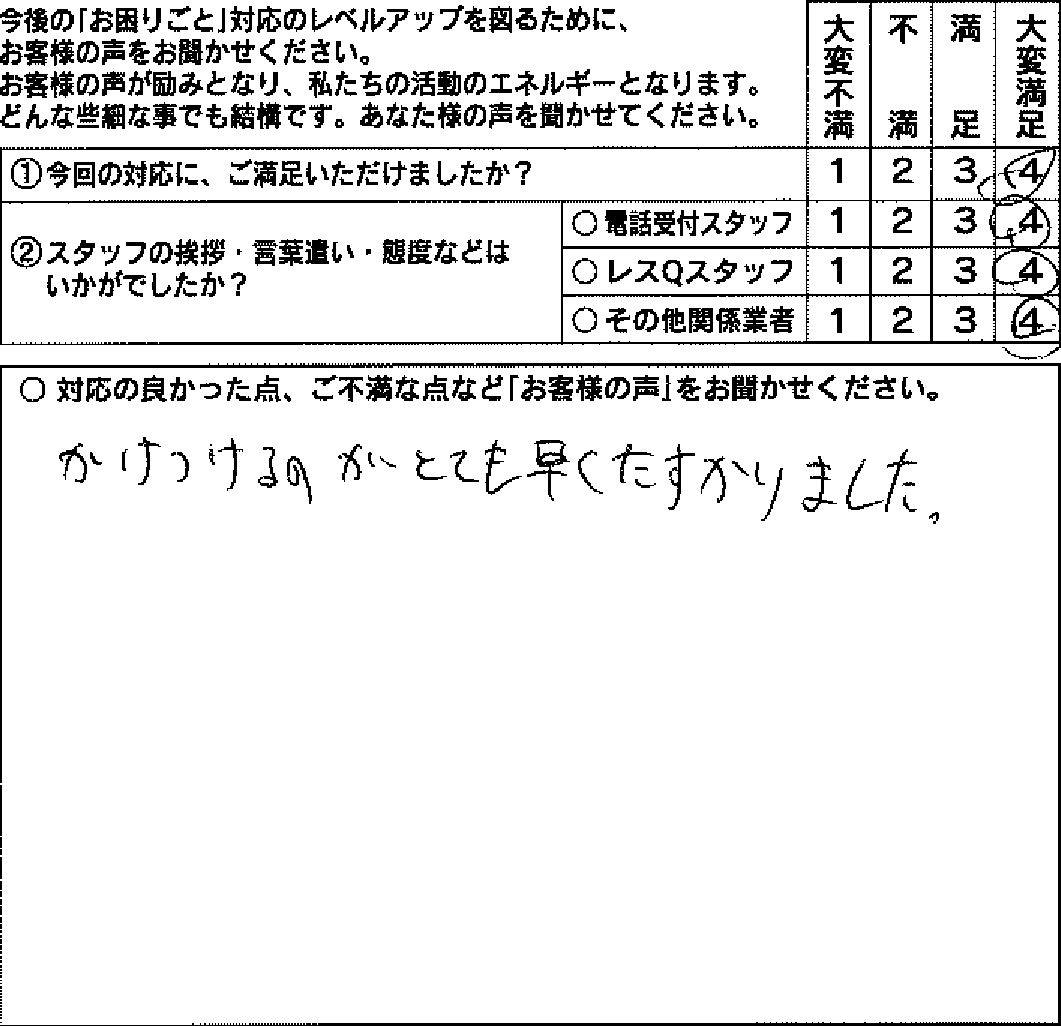 今後の「お困りごと」対応のレベルアップを図るために、
お客様の声をお聞かせください。
お客様の声が励みとなり、私たちの活動のエネルギーとなります。
どんな些細な事でも結構です。あなた様の声を聞かせてください。
大変不満 不満 満足 大変満足
①今回の対応に、ご満足いただけましたか？ 1 2 3 4
②スタッフの挨拶・言葉遣い・態度などは
いかがでしたか？
○電話受付スタッフ 1 2 3 4
○レスQスタッフ 1 2 3 4
○その他関係業者 1 2 3 4
○ 対応の良かった点、ご不満な点など「お客様の声」をお聞かせください。
かけつけるのがとても早くたすかりました。